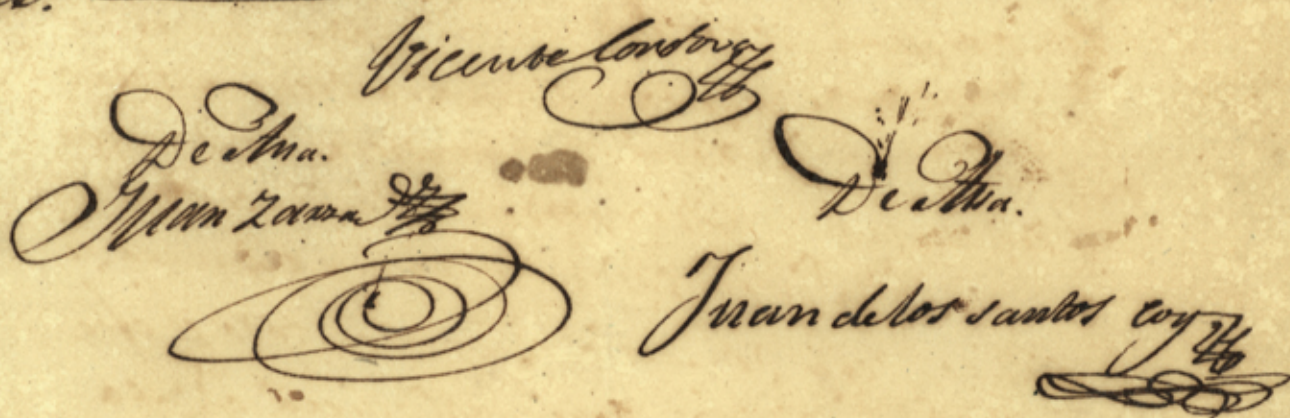 Vicente Cordova
De Asa.
Juan Zarza
De Asa.
Juan de los santos coy